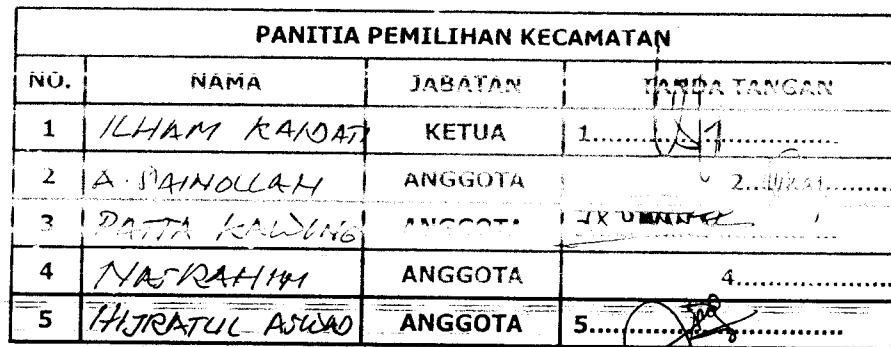 PANITIA PEMILIHAN KECAMATAN
NO. NAMA JABATAN TANDA TANGAN
1 ILHAM KAIDATI KETUA 1...........................
2 A. SAINOLLAH ANGGOTA 2...............
3 PATTA KAWUNG ANGGOTA
4 NASRAHIM ANGGOTA 4...............
5 HIJRATUL ASWAD ANGGOTA 5...........................